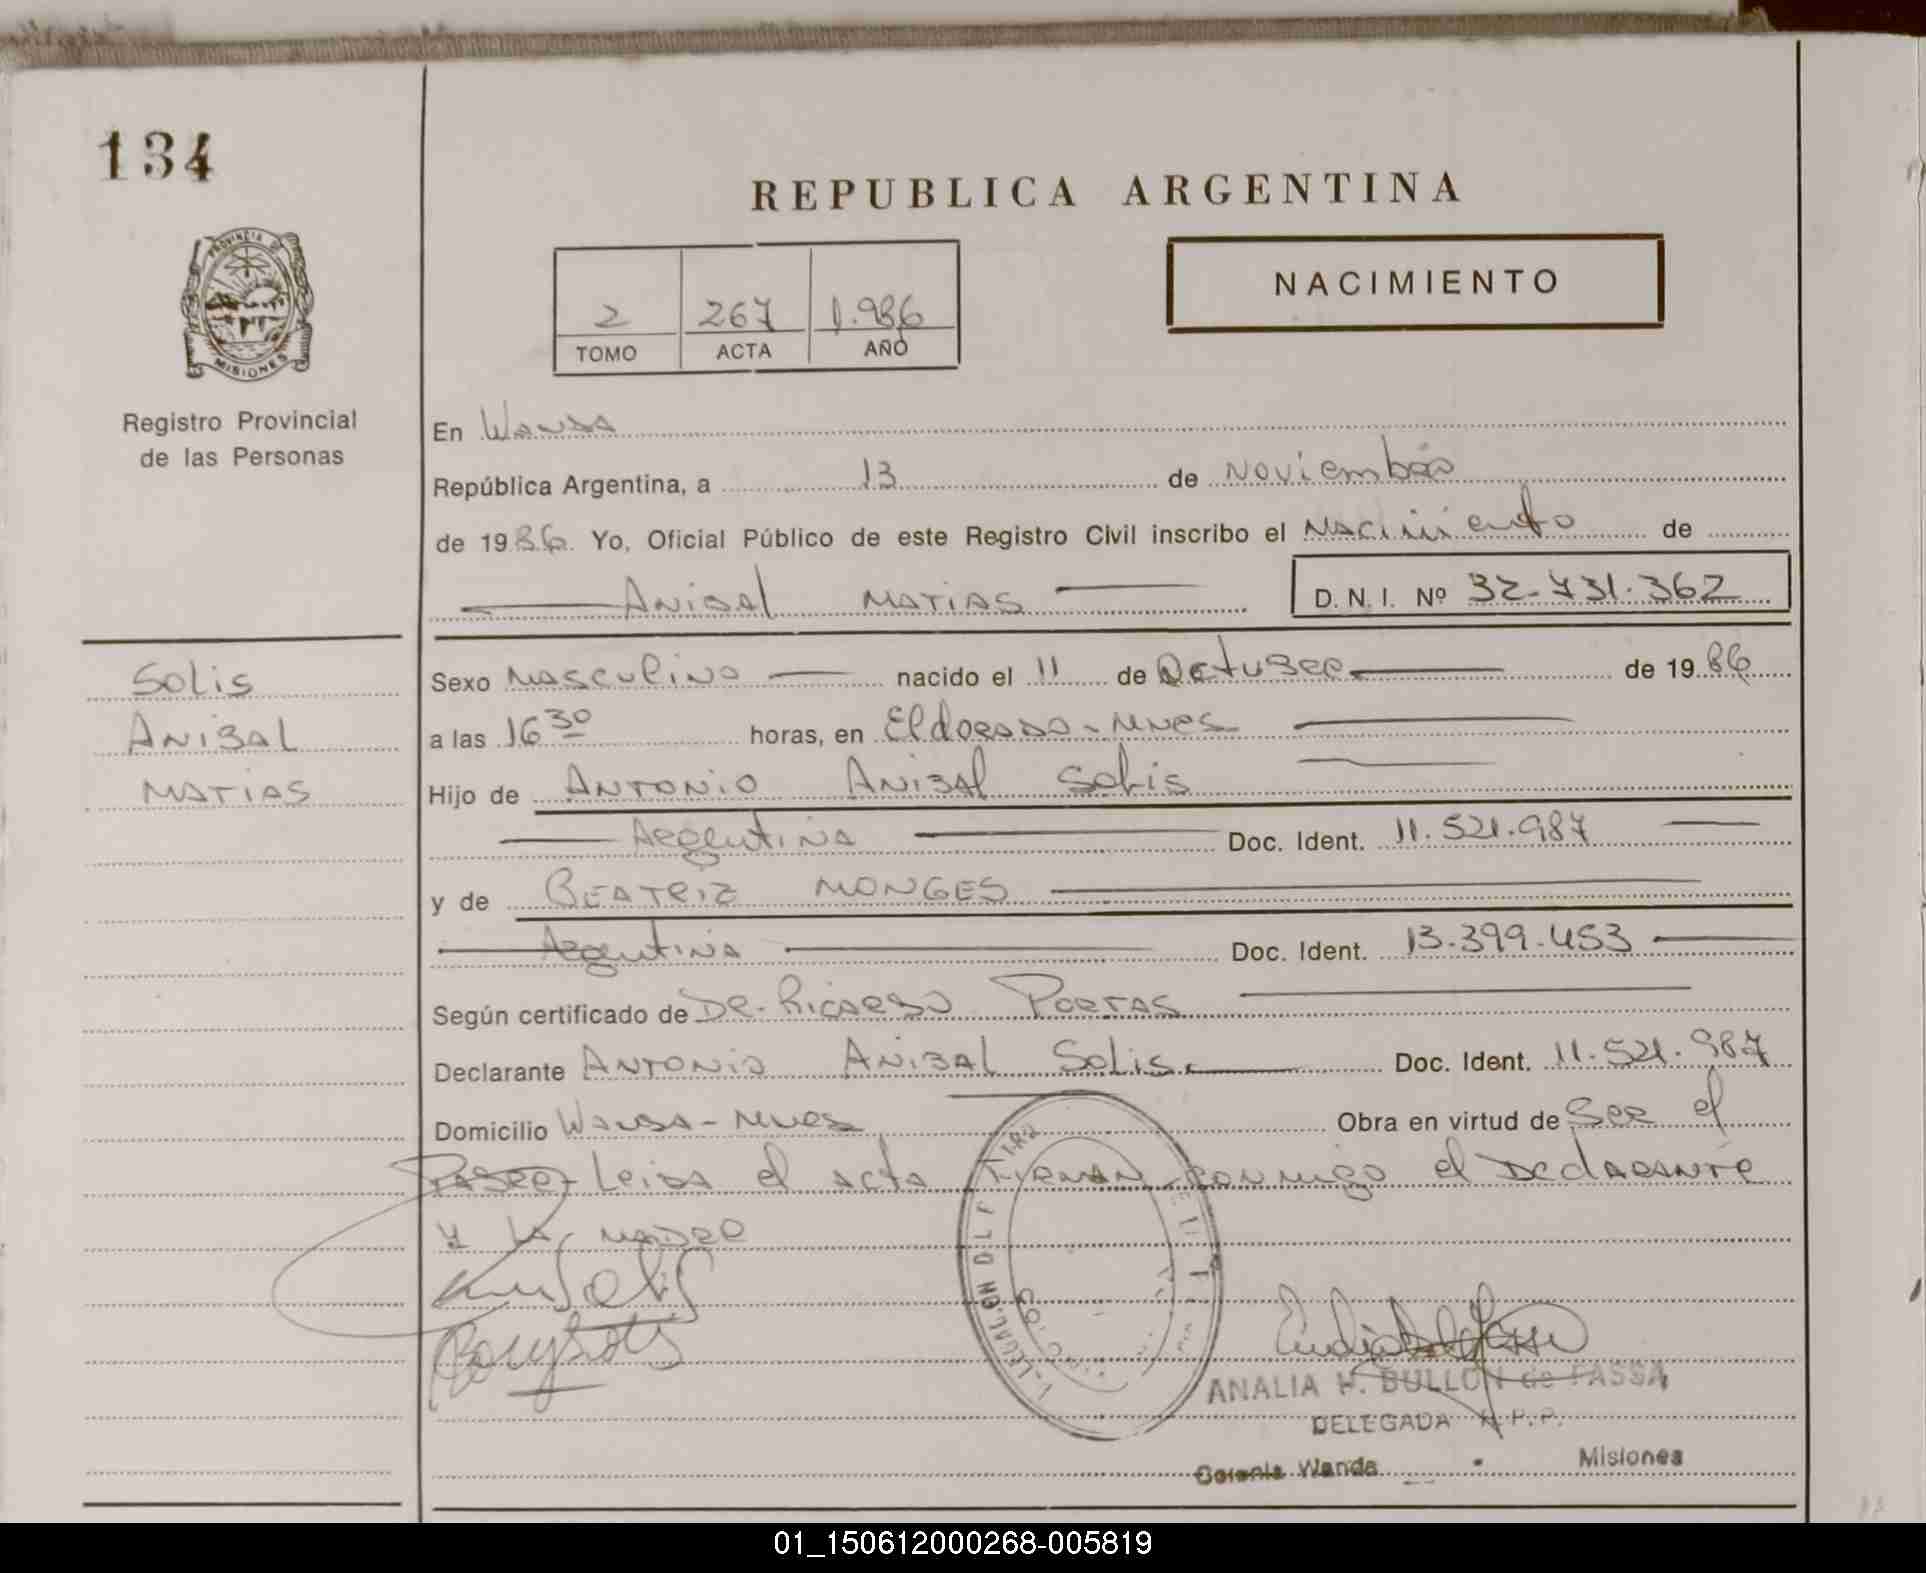 134
REPUBLICA ARGENTINA
PROVINCIA DE
MISIONES
Registro Provincial
de las Personas
2 267 1.986
TOMO ACTA AÑO
NACIMIENTO
En Wanda
República Argentina, a 13 de Noviembre
de 1986. Yo, Oficial Público de este Registro Civil inscribo el Nacimiento de
Anibal Matias D. N. I. Nº 32.731.362
Solis
Anibal
Matias
Sexo Masculino nacido el 11 de Octubre de 1986
a las 16 30 horas, en Eldorado - Mnes
Hijo de Antonio Anibal Solis
Argentina Doc. Ident. 11.521.987
y de Beatriz Monges
Argentina Doc. Ident. 13.399.453
Según certificado de Dr. Ricardo Portas
Declarante Antonio Anibal Solis Doc. Ident. 11.521.987
Domicilio Wanda - Mnes Obra en virtud de Ser el
Padre - Leida el acta Firman conmigo el Declarante
y la madre
ANALIA H. BULLON de FASSA
DELEGADA R. P. P.
Colonia Wanda - Misiones
01_150612000268-005819